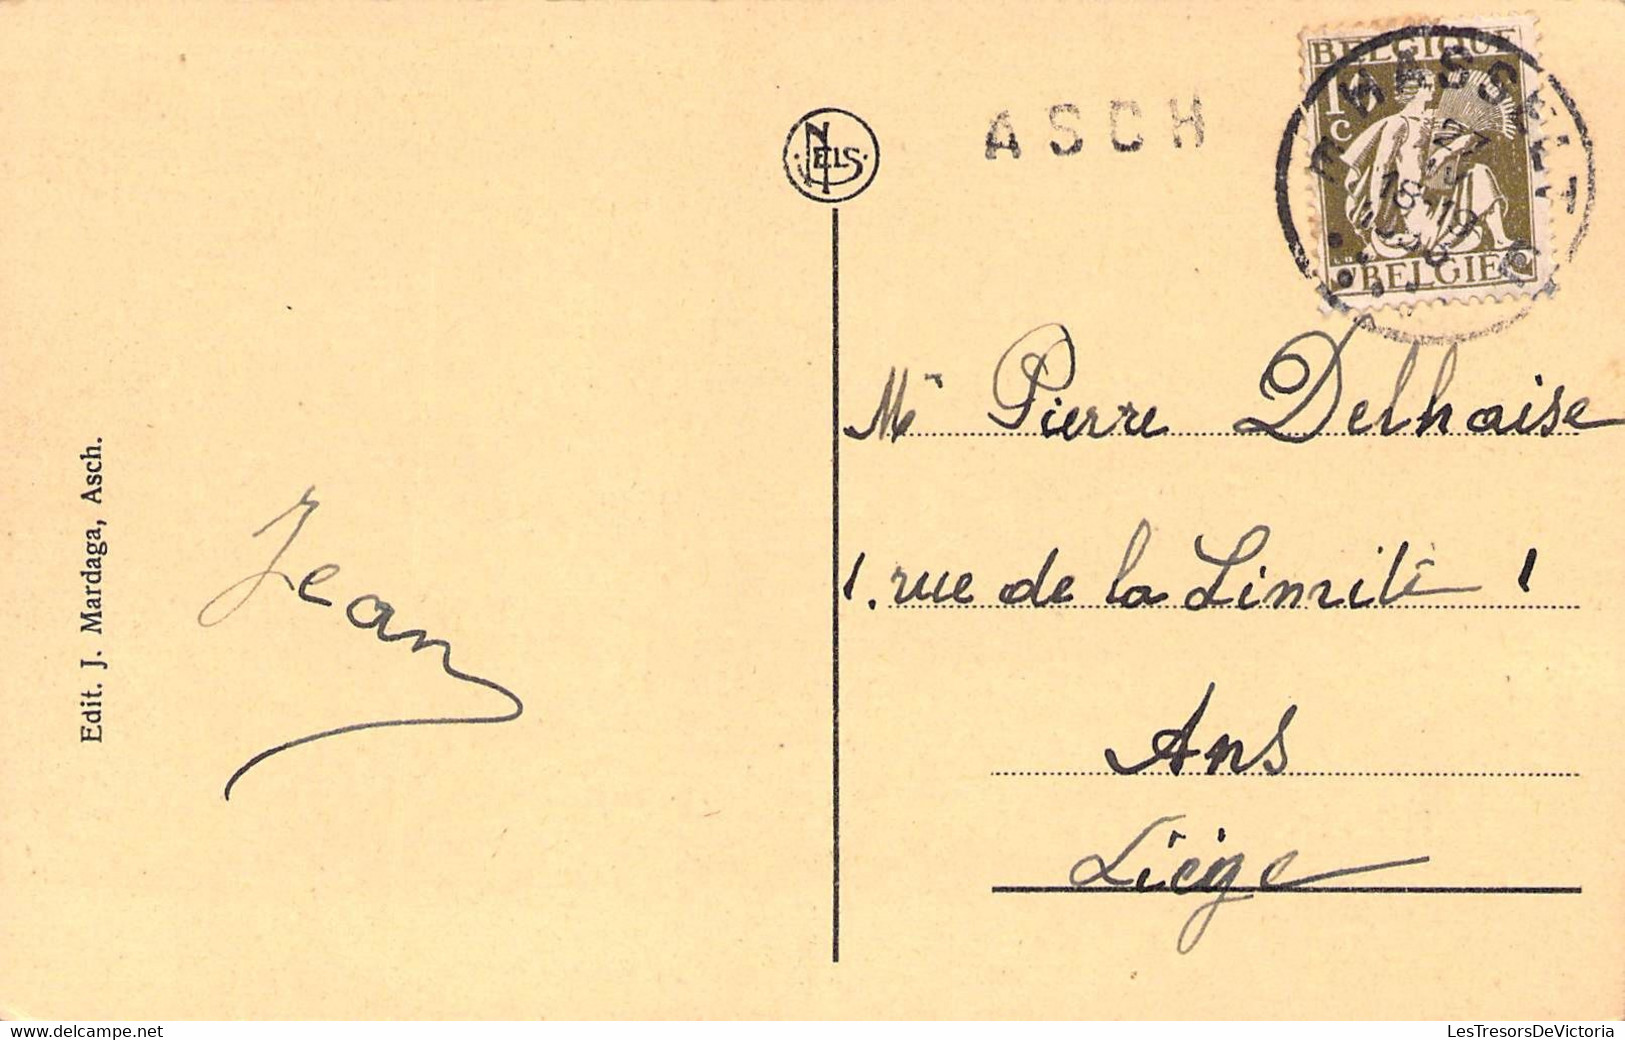 Edit. J. Mardaga, Asch.
NELS
ASCH
BELGIQUE
1c
BELGIË
HASSELT
27
18-19
Mr Pierre Delhaise
1. rue de la Limite 1
Ans
Liège
Jean
LesTresorsDeVictoria